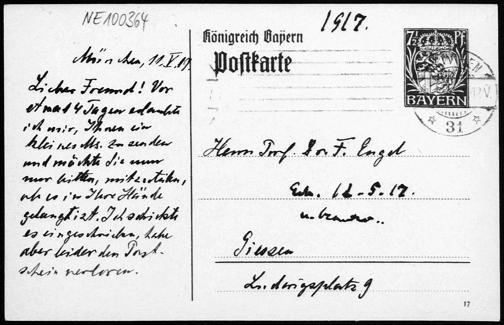 NE100364
1917.
Königreich Bayern
Postkarte
7½ Pf
BAYERN
31
München, 11.V.17.
Lieber Freund! Vor
etwa 14 Tagen erlaubte
ich mir, Ihnen ein
kleines Ms. zu senden
und möchte Sie nun
nur bitten, mitzuteilen,
ob es in Ihre Hände
gelangt ist. Ich schickte
es eingeschrieben, habe
aber leider den Post-
schein verloren.
Herrn Prof. Dr. F. Engel
Erh. 12-5-17.
Giessen
Ludwigsplatz 9
17